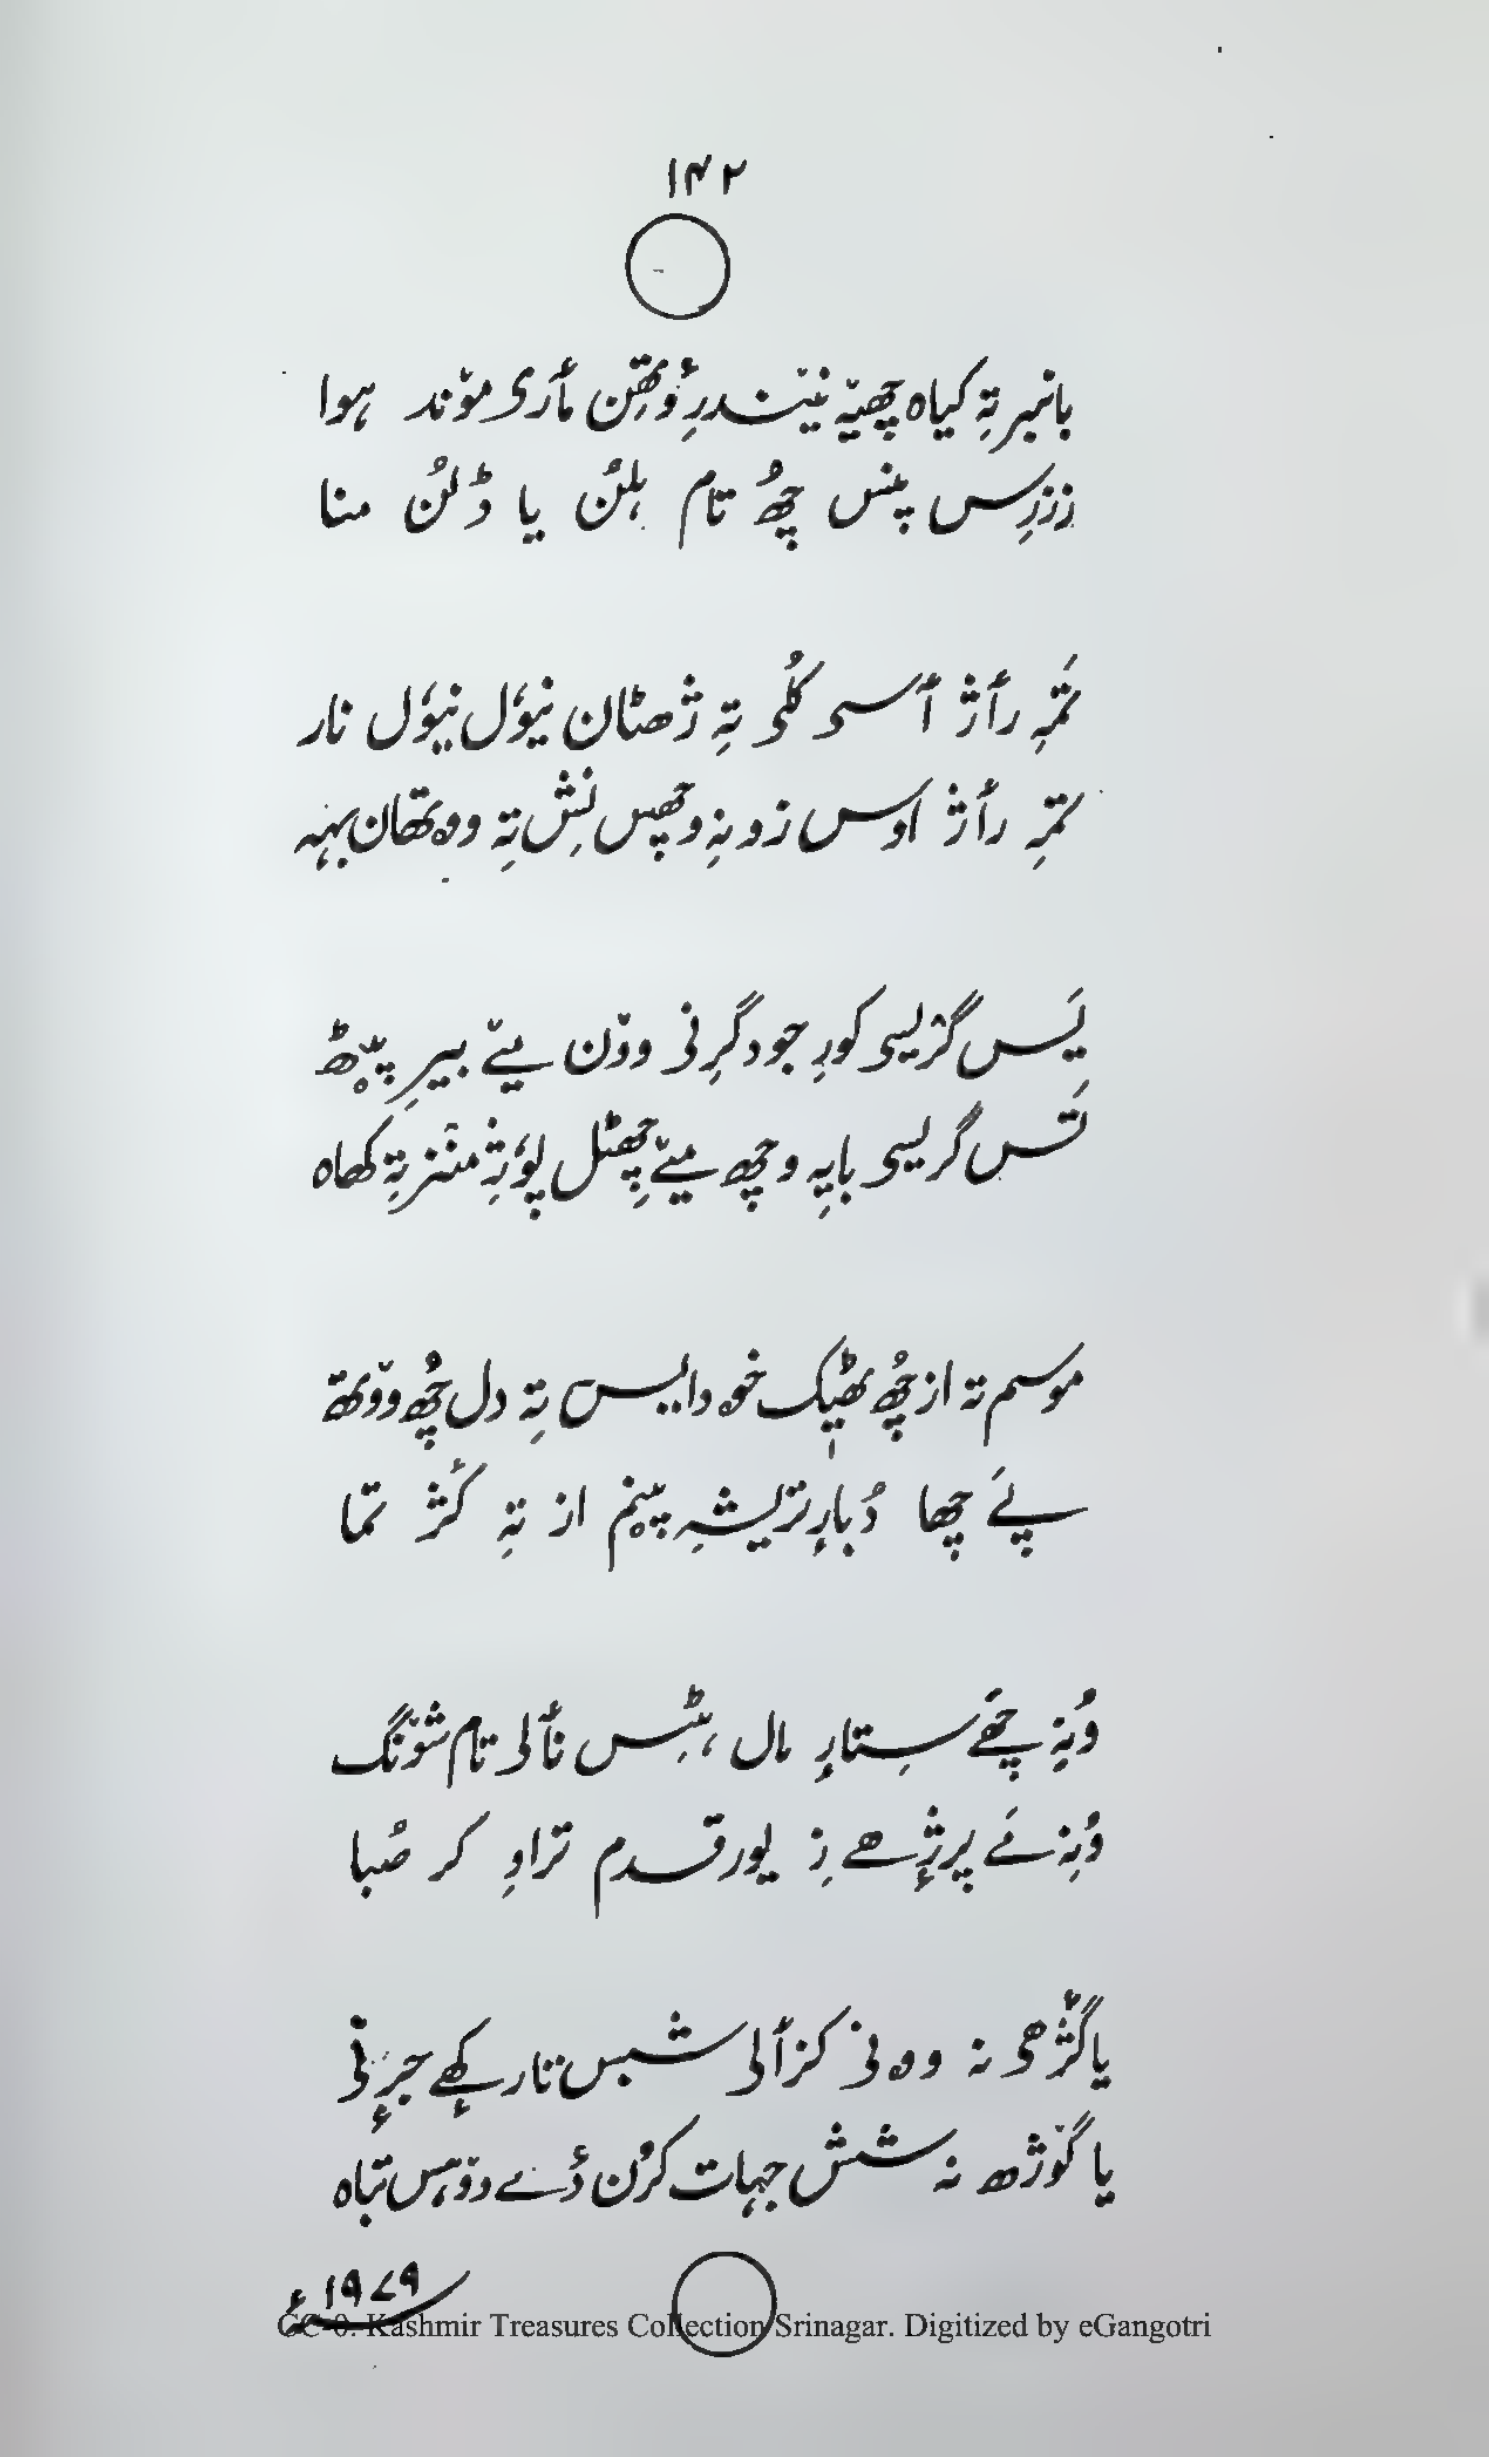 ۱۴۲
بانبرِ تہِ کیاہ چھیہٚ نیٚندرِ وٕتھِن مٲرۍ موٚند ہوا
ززرِس پنس چھُ تام ہلُن یا ڈلُن منا
تَمہِ رٲژ ٲسۍ کُلۍ تہِ ژھٹان نیوٗل نیوٗل نار
تمہِ رٲژ اوس زونہِ وچھس نِش تہِ ووتھان بہہ
یَس گژیسۍ کورِ جود گرِنی ووٚن میےٚ بیرِ پیٚٹھ
تَس گریسۍ بابہِ وچھ میےٚ چھِٹل پوٗتہِ منٛز تہِ کھاہ
موسم تہ از چھُ ٹھیٖک خودایس تہِ دل چھُ ووٚتھ
پےَ چھا دُبارٕ تریشہِ پینم از تہِ کٔژ تما
وُنہِ چھےَ سِتارٕ مال ہٹِس نٲلۍ تام شوٚنگ
وُنہِ نےَ پرژٕھے زِ یور قدم تراوِ کر صُبا
یا گژھی نہ وونۍ کزٲلۍ شبس تار کٕھے جرٕنۍ
یا گوٚژھ نہ شش جہات کرُن دٔے دوٚہس تباہ
۱۹۷۹ء
CC-0. Kashmir Treasures Collection Srinagar. Digitized by eGangotri